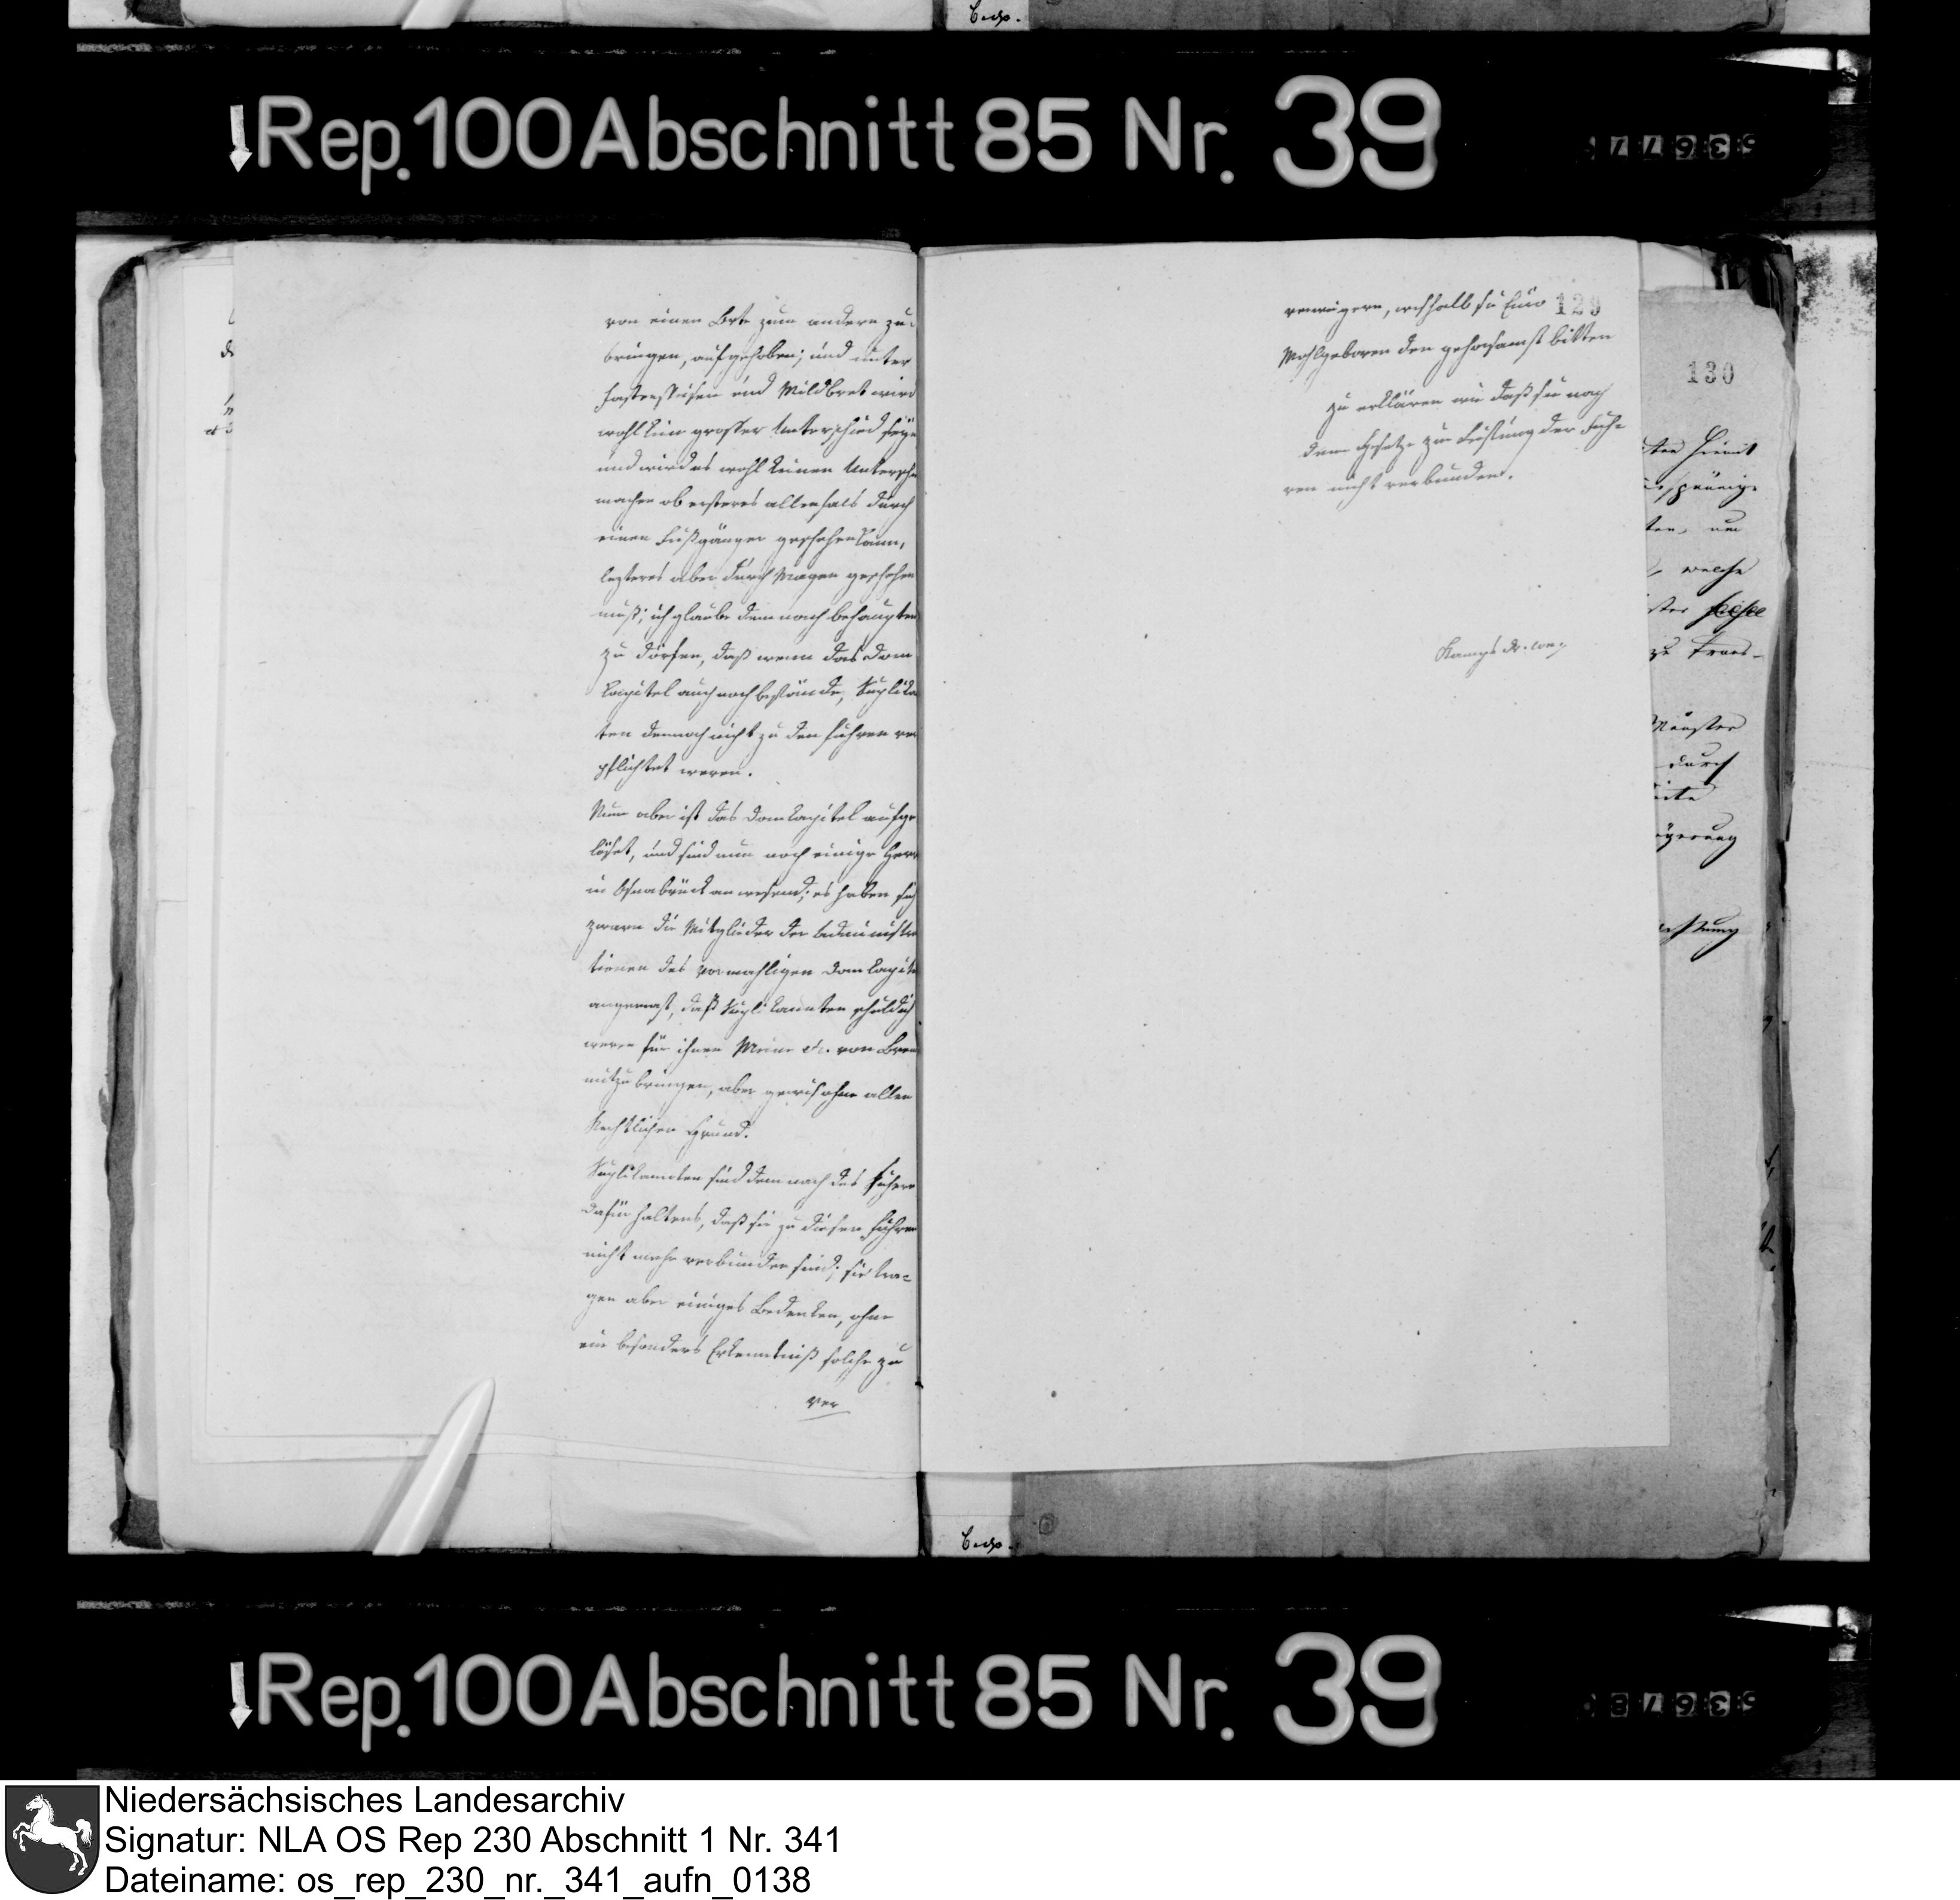 Cessp.
Rep. 100 Abschnitt 85 Nr. 39
von einen Orte zum andern zu-
bringen, aufgehoben; und unter
Fastenspeisen und Wildbret wird
wohl kein grosser Unterschied seyn
und wird es wohl keinen Untersch
machen ob ersteres allenfals durch
einen Fußgänger geschehen kann,
lezteres aber durch Wagen geschehen
muß; ich glaube demnach behaupten
zu dörfen, daß wenn das Dom
Capitel auch noch bestünde, Suplikan
ten dennoch nicht zu den Fuhren ver
pflichtet weren.
Nun aber ist das Domkapitel aufge
löset, und sind nur noch einige Herrn
in Osnabrück anwesend; es haben sich
zwarn die Mitglieder der Administra
tionen des vormahligen Dom Capite
angemast, daß Suplikannten schuldig
weren für ihnen Weine etc. von Brem
mitzubringen, aber gewis ohne allen
Rechtlichen Grund.
Suplikannten sind demnach des sichern
dafürhaltens, daß sie zu diesen Fuhren
nicht mehr verbunden sind; sie tra-
gen aber einiges Bedenken, ohne
ein besonders Erkenntniß solche zu
ver
129
verweigern, weshalb sie Euro
Wohlgeboren den gehorsamst bitten
zu erklären wie daß sie nach
dem Gesetze zur Leistung der Fuh-
ren nicht verbunden.
Kamps Dr.
130
ten hiemit
spännige
ten, um
welche
zu trans-
Münster
durch
igerung
istung
Rep. 100 Abschnitt 85 Nr. 39
Niedersächsisches Landesarchiv
Signatur: NLA OS Rep 230 Abschnitt 1 Nr. 341
Dateiname: os_rep_230_nr._341_aufn_0138